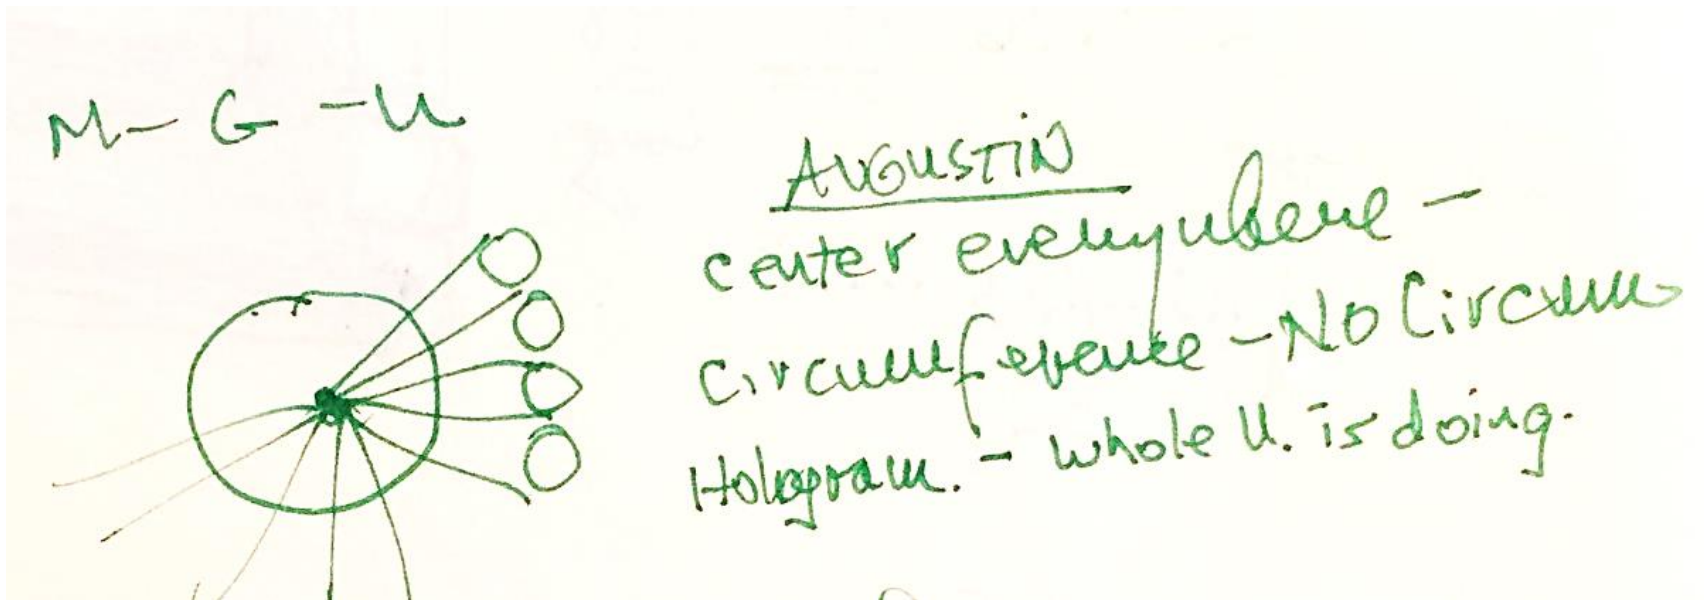 M - G - U
AUGUSTIN
center everywhere -
Circumference - NO Circum
Hologram. - whole U. is doing.